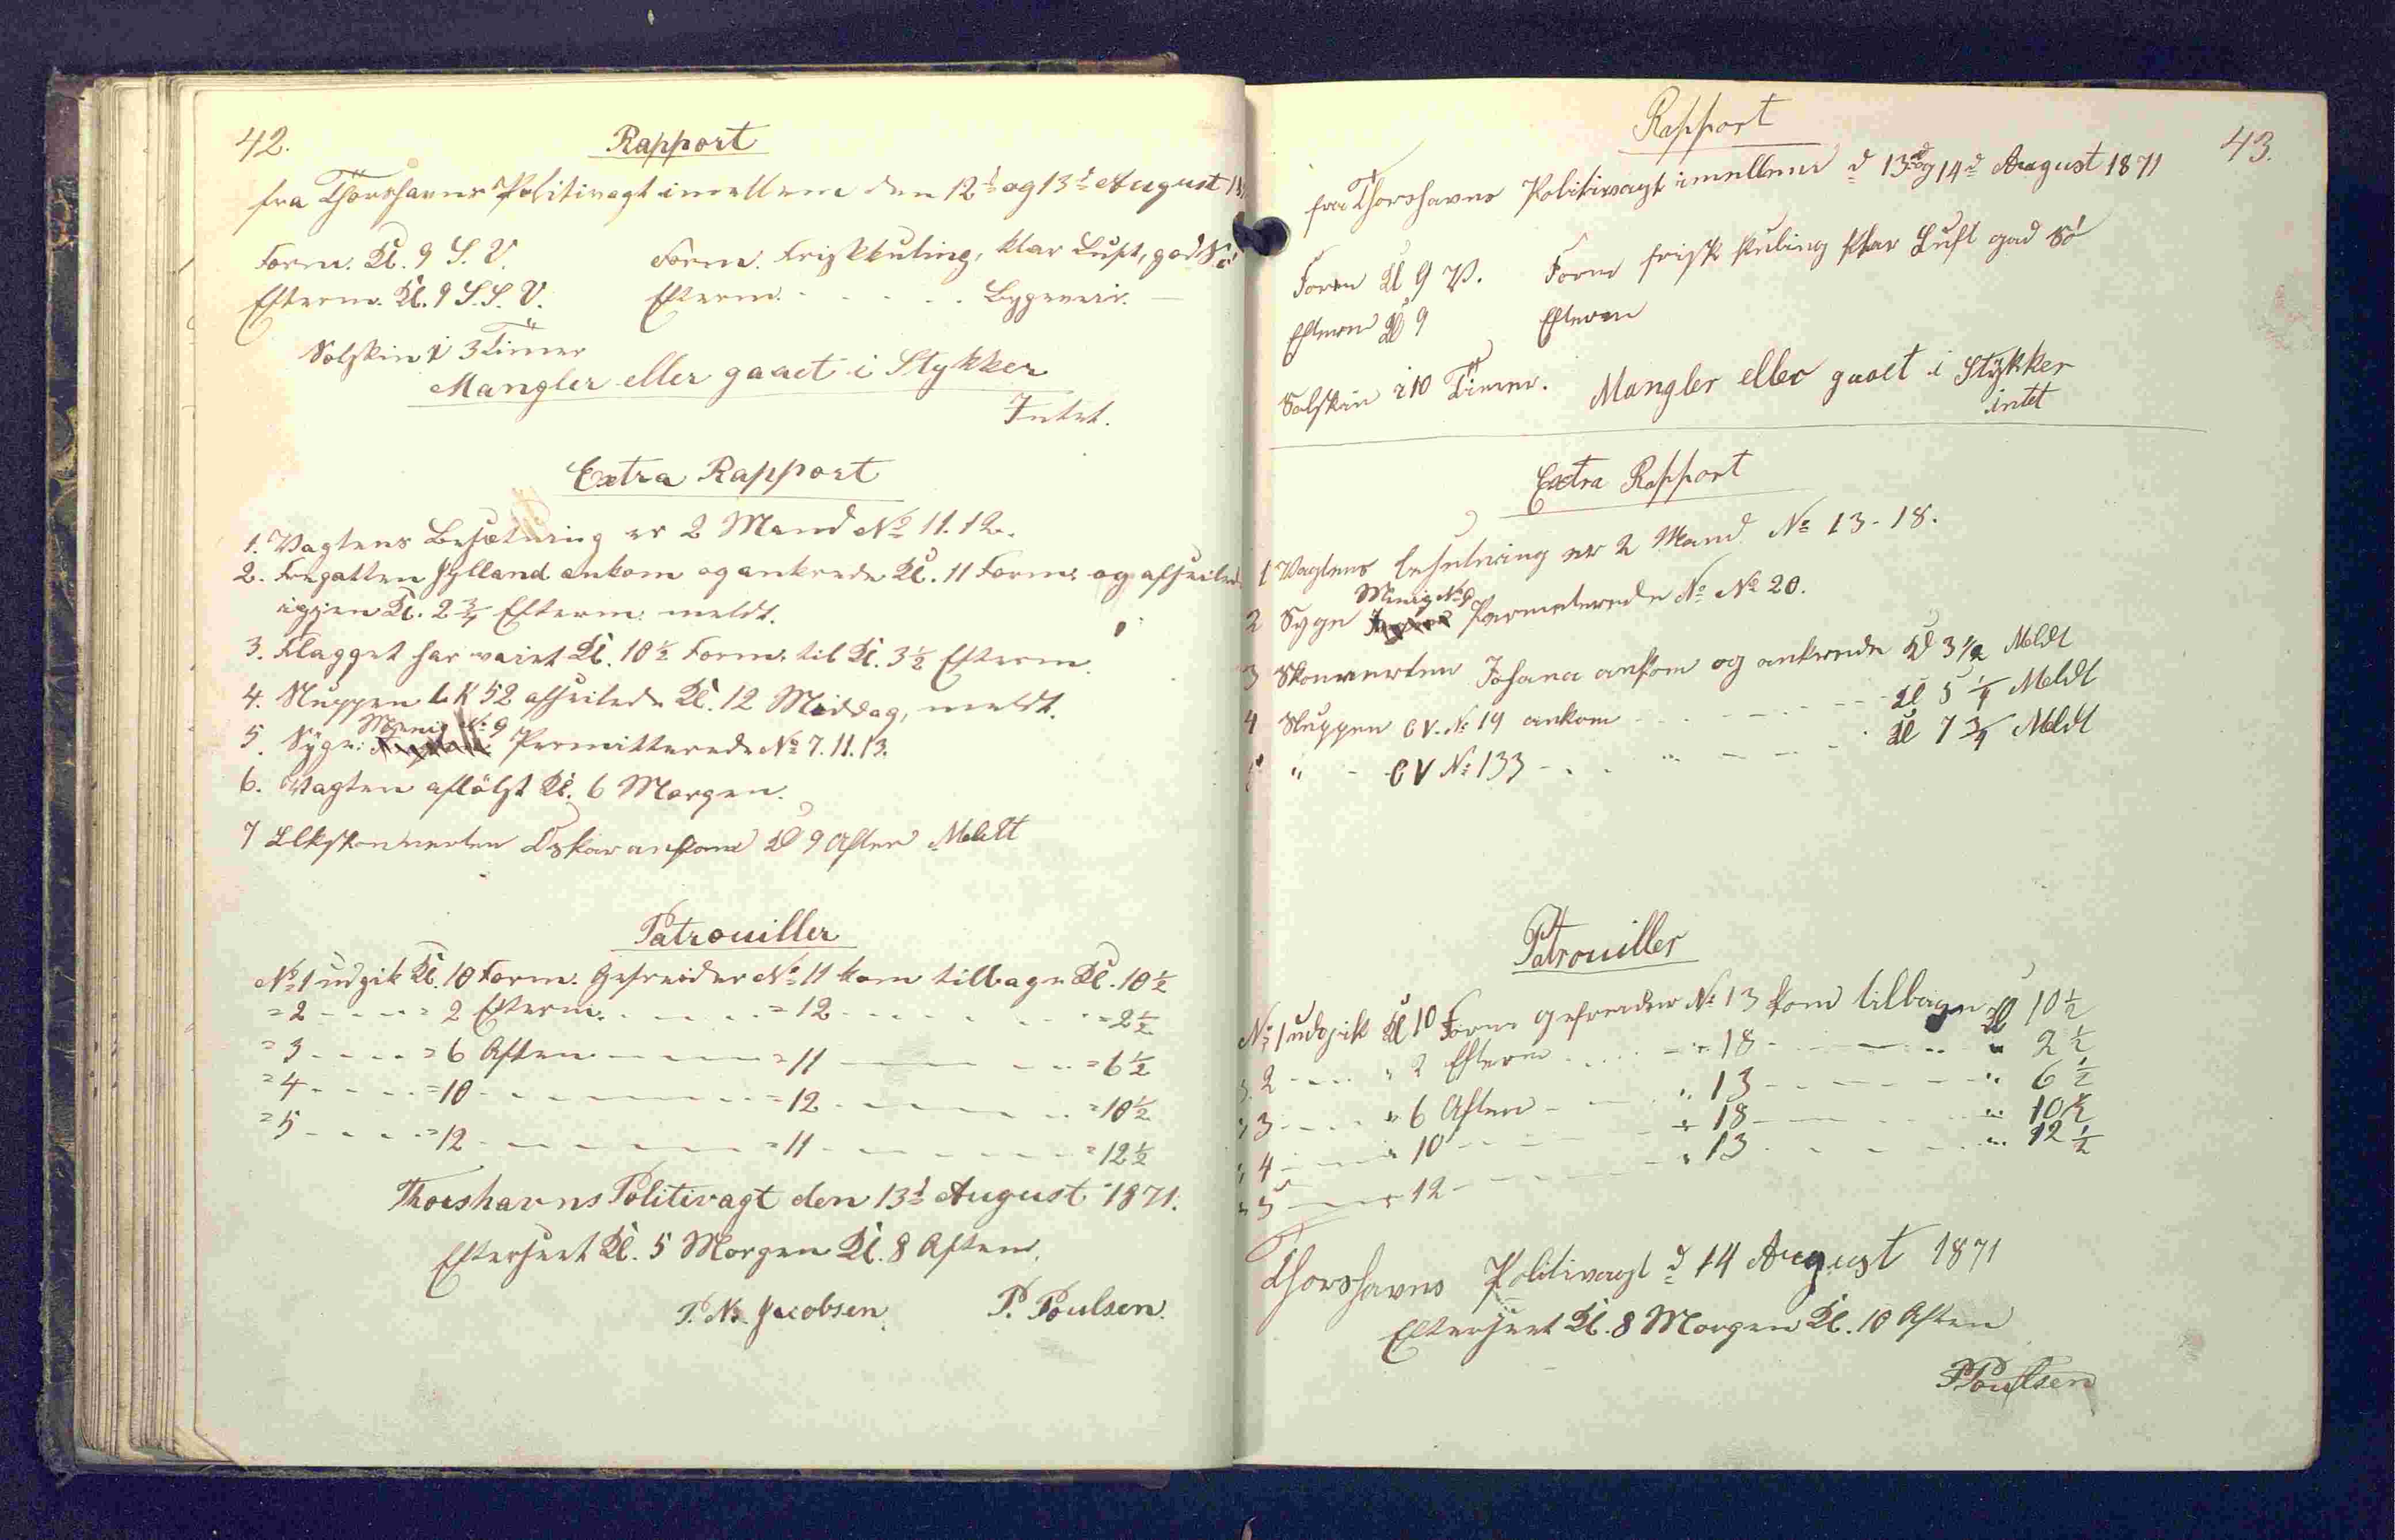 42.
Rapport
fra Thorshavns Politivagt imellem den 12t og 13t August 18
Form. Kl. 9 S. V. Form. Friskkuling, klar Luft, god Sö
Efterm. Kl. 9 S. S. V. Efterm. - - - - - Bygeveir. —
Solskin i 3 Timer
Mangler eller gaaet i Stykker
Intet.
Extra Rapport
1. Vagtens Besætning er 2 Mand No 11. 12.
2. Fregatten Jylland ankom og ankrede Kl. 11 Form. og afseilede
igjen Kl. 2 3/4 Efterm. meldt.
3. Flagget har vaiet Kl. 10 1/2 Form. til Kl. 3 1/2 Efterm.
4. Sluppen L K 52 afseilede Kl. 12 Middag, meldt.
5. Syge: Menig No 9 Permitterede No 7. 11. 13.
6. Vagten aflöst Kl. 6 Morgen.
7 Oskar ankom Kl 9 Aften Meldt
Patrouiller
No 1 udgik Kl. 10 Form. Gefreider No 11 kom tilbage Kl. 10 1/2
= 2 - - - - = 2 Efterm. - - - - = 12 - - - - - = 2 1/2
= 3 - - - - = 6 Aften - - - - = 11 - - - - = 6 1/2
= 4 - - - - = 10 - - - - - = 12 - - - - = 10 1/2
= 5 - - - - = 12 - - - - - = 11 - - - - - = 12 1/2
Thorshavns Politivagt den 13d August 1871.
Efterseet Kl. 5 Morgen Kl. 8 Aften.
P. Ns. Jacobsen P. Poulsen.
43.
Rapport
fra Thorshavns Politivagt imellem d 13d og 14d August 1871
Form Kl 9 V. Form frisk Kuling klar Luft god Sö
Efterm Kl 9 Efterm
Solskin i 10 Timer. Mangler eller gaaet i Stykker
intet
Extra Rapport
1 Vagtens besetning er 2 Mand No 13 - 18.
2 Syge Menig No 9 Permeterede No No 20.
3 Skonnerten Johana ankom og ankrede Kl 3 1/2 Meldt
4 Sluppen C V. No 19 ankom - - - - - - Kl 5 1/4 Meldt
5 " - C V No 133 - - - - - - Kl 7 3/4 Meldt
Patrouiller
No 1 udgik Kl 10 Form Gefreider No 13 kom tilbage Kl 10 1/2
" 2 - - - - " 2 Efterm - - - - " 18 - - - - " 2 1/2
" 3 - - - - " 6 Aften - - - - " 13 - - - - " 6 1/2
" 4 - - - - " 10 - - - - " 18 - - - - " 10 1/2
" 5 - - - - " 12 - - - - " 13 - - - - " 12 1/2
Thorshavns Politivagt d 14 August 1871
Efterseet Kl. 8 Morgen Kl. 10 Aften
P Poulsen